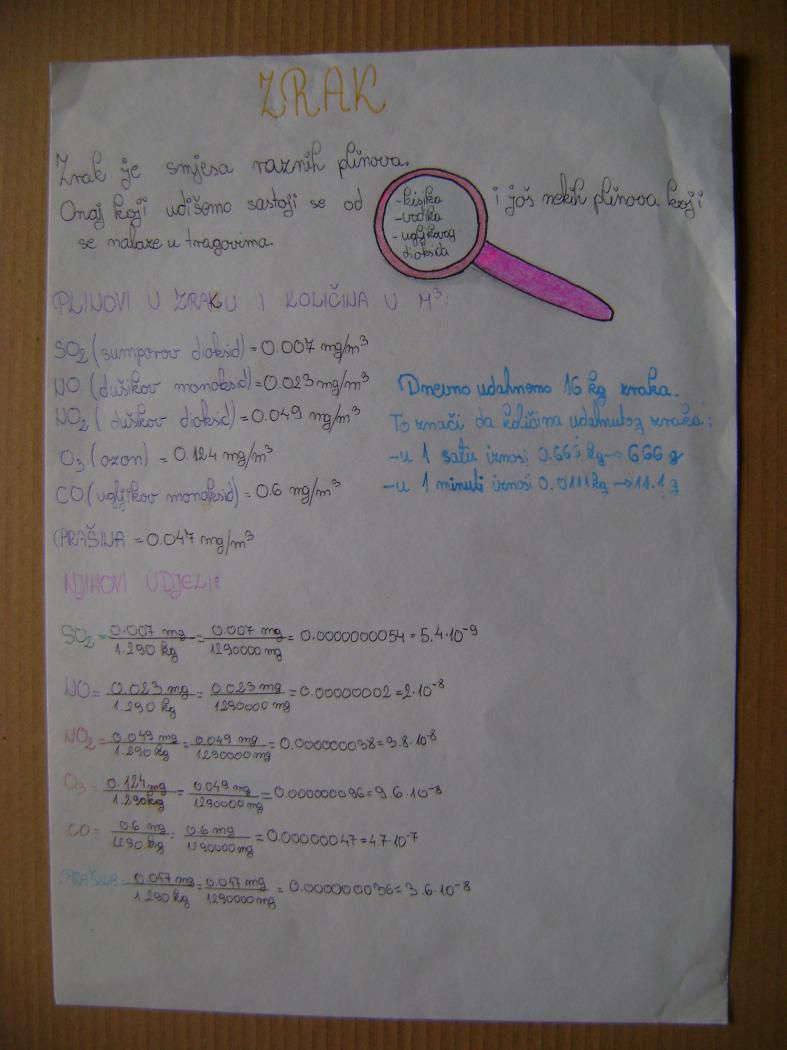 ZRAK
Zrak je smjesa raznih plinova.
Onaj koji udišemo sastoji se od
-kisika
-vodika
-ugljikovog
dioksida
i još nekih plinova koji
se nalaze u tragovima.
PLINOVI U ZRAKU I KOLIČINA U M³:
SO₂ (sumporov dioksid) = 0.007 mg/m³
NO (dušikov monoksid) = 0.023 mg/m³
NO₂ (duškov dioksid) = 0.049 mg/m³
O₃ (ozon) = 0.124 mg/m³
CO (ugljikov monoksid) = 0.6 mg/m³
PRAŠINA = 0.047 mg/m³
Dnevno udahnemo 16 kg zraka.
To znači da količina udahnutog zraka:
-u 1 satu iznosi 0.666 kg → 666 g
-u 1 minuti iznosi 0.0111 kg → 11.1 g
NJIHOVI UDJELI:
SO₂ = 0.007 mg / 1.290 kg = 0.007 mg / 1290000 mg = 0.0000000054 = 5.4·10⁻⁹
NO = 0.023 mg / 1.290 kg = 0.023 mg / 1290000 mg = 0.00000002 = 2·10⁻⁸
NO₂ = 0.049 mg / 1.290 kg = 0.049 mg / 1290000 mg = 0.000000038 = 3.8·10⁻⁸
O₃ = 0.124 mg / 1.290 kg = 0.049 mg / 1290000 mg = 0.000000096 = 9.6·10⁻⁸
CO = 0.6 mg / 1290 kg = 0.6 mg / 1290000 mg = 0.00000047 = 4.7·10⁻⁷
PRAŠINA = 0.047 mg / 1.290 kg = 0.047 mg / 1290000 mg = 0.000000036 = 3.6·10⁻⁸